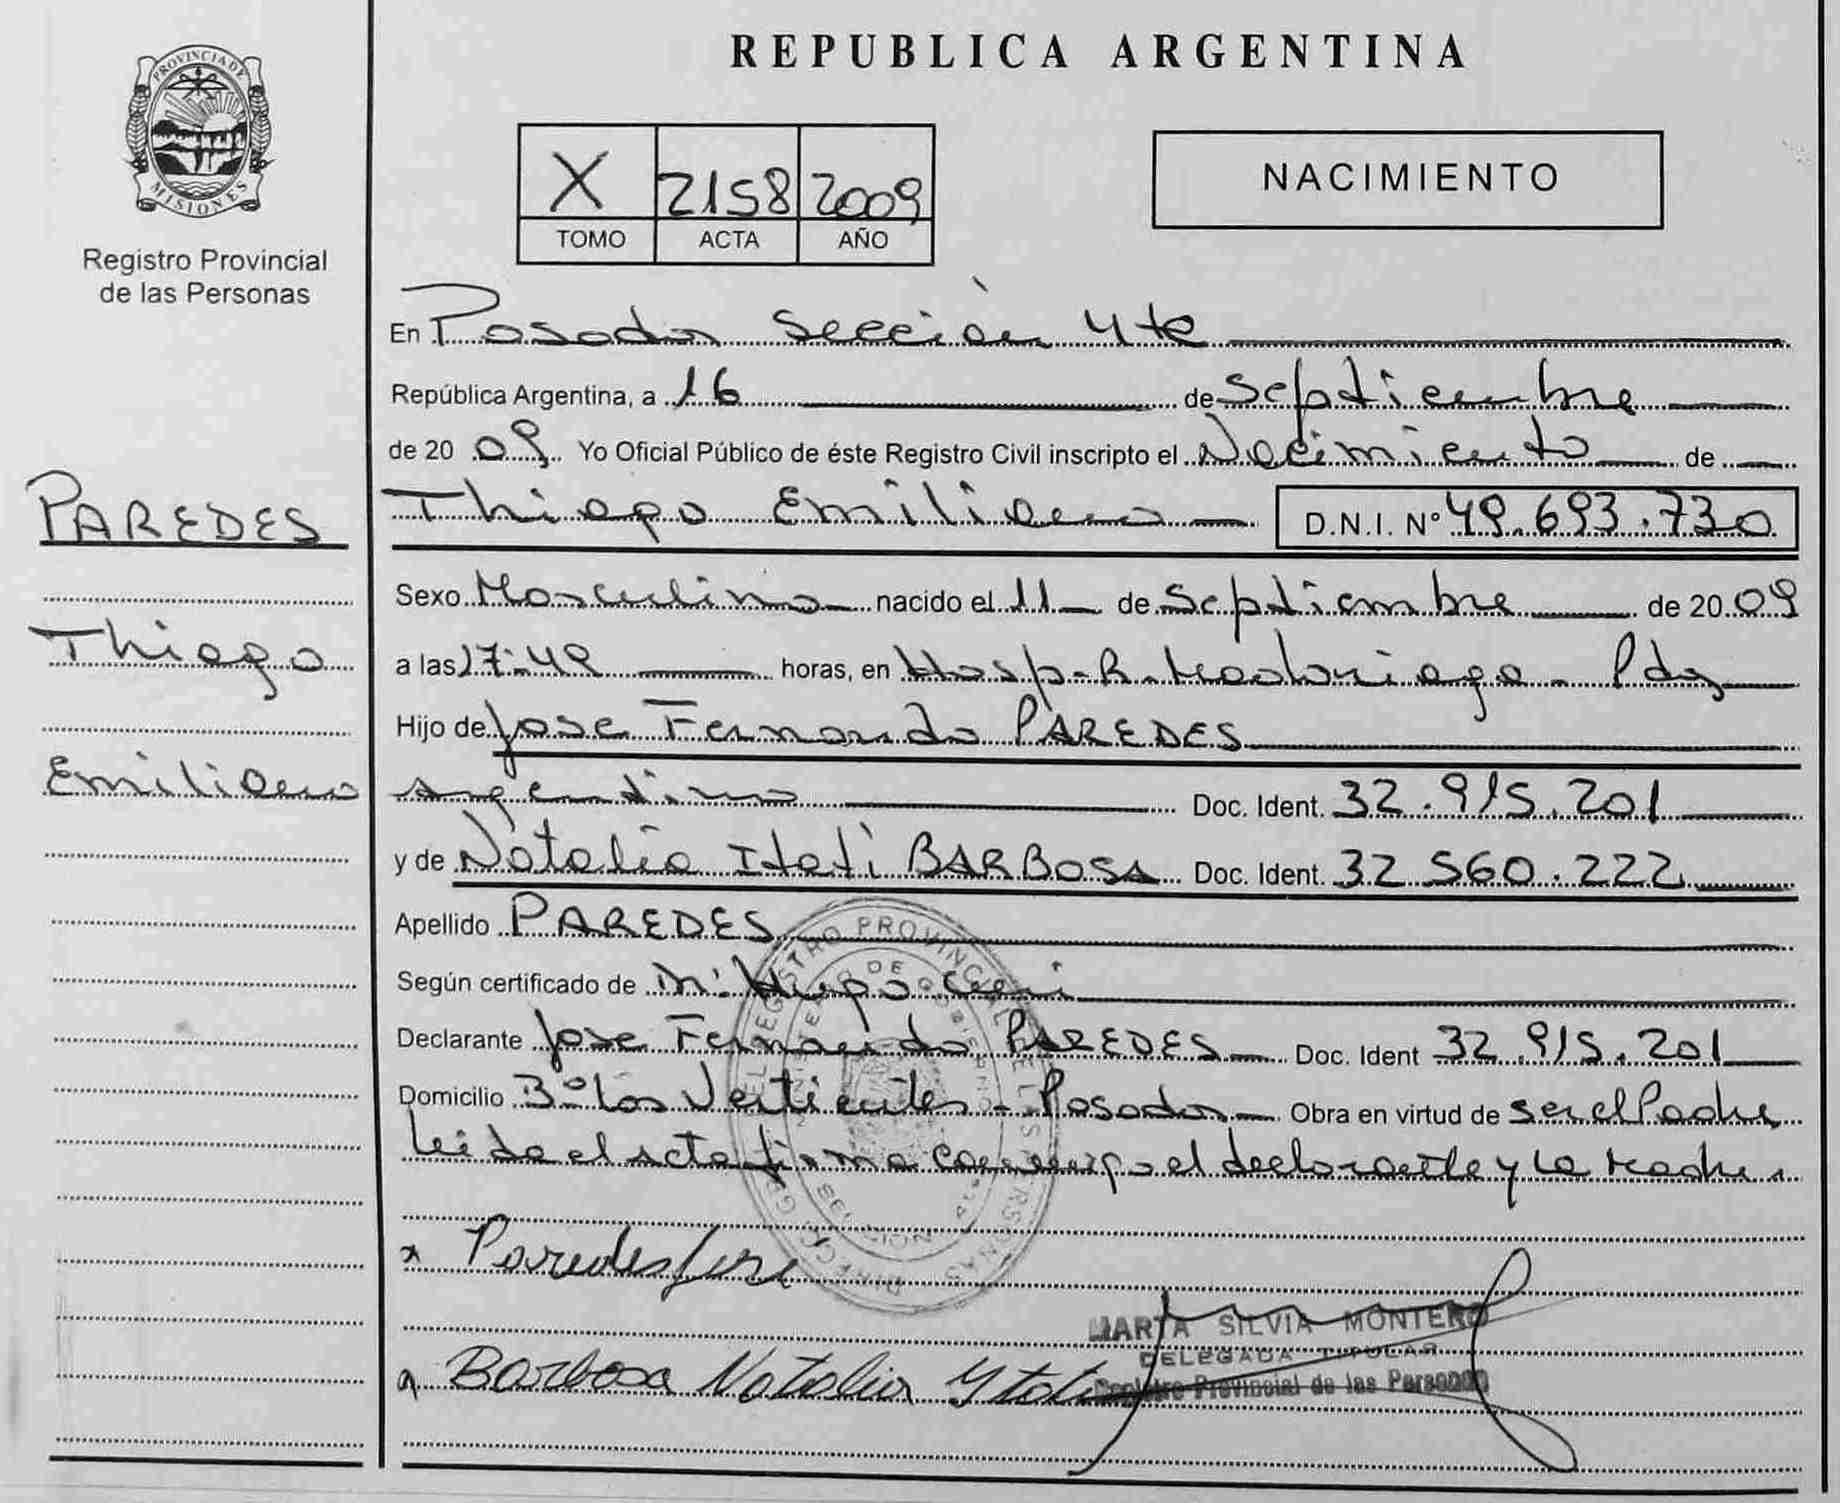 PROVINCIA DE
MISIONES
Registro Provincial
de las Personas
PAREDES
Thiago
Emiliano
REPUBLICA ARGENTINA
X 2158 2009
TOMO ACTA AÑO
NACIMIENTO
En Posadas Sección 4ta
República Argentina, a 16 de Septiembre
de 20 09 Yo Oficial Público de éste Registro Civil inscripto el Nacimiento de
Thiago Emiliano D.N.I. Nº 49.693.730
Sexo Masculino nacido el 11 de Septiembre de 20 09
a las 17:49 horas, en Hosp. R. Madariaga - Pdas
Hijo de Jose Fernando PAREDES
Argentino Doc. Ident. 32.915.201
y de Natalia Itati BARBOSA Doc. Ident. 32 560.222
Apellido PAREDES
Según certificado de Hugo
Declarante Jose Fernando PAREDES Doc. Ident 32.915.201
Domicilio Bº Las Vertientes - Posadas Obra en virtud de ser el Padre
leida el acta firma conmigo el declarante y la Madre
Paredes Jose
MARTA SILVIA MONTERO
DELEGADA TITULAR
Registro Provincial de las Personas
Barbosa Natalia Ytati